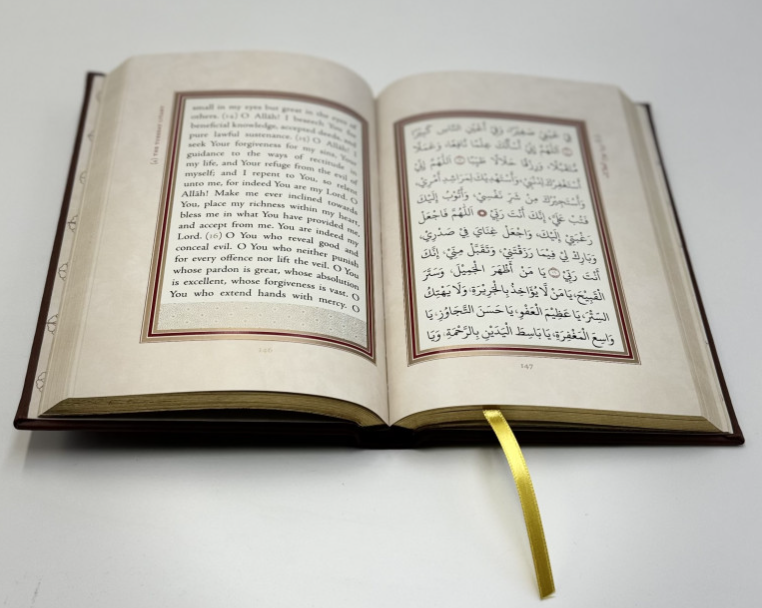 small in my eyes but great in the eyes of
others. (14) O Allāh! I beseech You for
beneficial knowledge, accepted deeds, and
pure lawful sustenance. (15) O Allāh! I
seek Your forgiveness for my sins, Your
guidance to the ways of rectitude in
my life, and Your refuge from the evil of
myself; and I repent to You, so relent
unto me, for indeed You are my Lord. O
Allāh! Make me ever inclined towards
You, place my richness within my heart,
bless me in what You have provided me,
and accept from me. You are indeed my
Lord. (16) O You who reveal good and
conceal evil. O You who neither punish
for every offence nor lift the veil. O You
whose pardon is great, whose absolution
is excellent, whose forgiveness is vast. O
You who extend hands with mercy. O
146
فِي عَيْنِي صَغِيرًا، وَفِي أَعْيُنِ النَّاسِ كَبِيرًا
اَللّٰهُمَّ إِنِّي أَسْأَلُكَ عِلْمًا نَافِعًا، وَعَمَلًا
مُتَقَبَّلًا، وَرِزْقًا حَلَالًا طَيِّبًا اَللّٰهُمَّ إِنِّي
أَسْتَغْفِرُكَ لِذَنْبِي، وَأَسْتَهْدِيكَ لِمَرَاشِدِ أَمْرِي،
وَأَسْتَجِيرُكَ مِنْ شَرِّ نَفْسِي، وَأَتُوبُ إِلَيْكَ
فَتُبْ عَلَيَّ، إِنَّكَ أَنْتَ رَبِّي اَللّٰهُمَّ فَاجْعَلْ
رَغْبَتِي إِلَيْكَ، وَاجْعَلْ غِنَايَ فِي صَدْرِي،
وَبَارِكْ لِي فِيمَا رَزَقْتَنِي، وَتَقَبَّلْ مِنِّي، إِنَّكَ
أَنْتَ رَبِّي يَا مَنْ أَظْهَرَ الْجَمِيلَ، وَسَتَرَ
الْقَبِيحَ، يَا مَنْ لَا يُؤَاخِذُ بِالْجَرِيرَةِ، وَلَا يَهْتِكُ
السِّتْرَ، يَا عَظِيمَ الْعَفْوِ، يَا حَسَنَ التَّجَاوُزِ، يَا
وَاسِعَ الْمَغْفِرَةِ، يَا بَاسِطَ الْيَدَيْنِ بِالرَّحْمَةِ، وَيَا
147